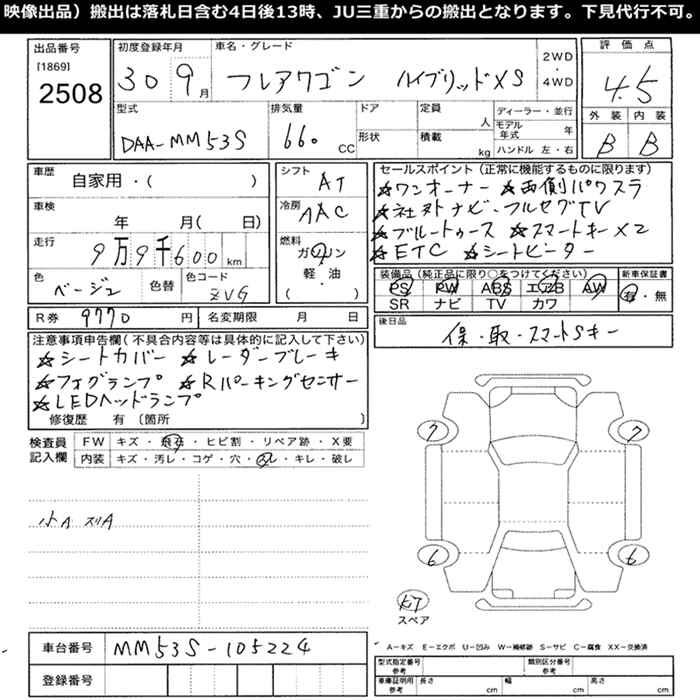 映像出品）搬出は落札日含む4日後13時、JU三重からの搬出となります。下見代行不可。
出品番号
[1869]
2508
初度登録年月
30 9月
車名・グレード
フレアワゴン ハイブリッドXS
2WD
・
4WD
評価点
4.5
外装 内装
B B
型式
DAA-MM53S
排気量
660 CC
ドア
形状
定員 人
積載 kg
ディーラー・並行
モデル年式 年
ハンドル 左・右
車歴
自家用・( )
車検
年 月( 日)
走行
9万9千600 km
色
ベージュ
色替
色コード
ZVG
シフト
AT
冷房
AAC
燃料
ガソリン
軽・油
( )
R券 9770 円
名変期限 月 日
セールスポイント(正常に機能するものに限ります)
☆ワンオーナー ☆両側パワスラ
☆社外ナビ・フルセグTV
☆ブルートゥース ☆スマートキーX2
☆ETC ☆シートヒーター
装備品(純正品に限り○をつけてください)
PS PW ABS エアB AW
SR ナビ TV カワ
新車保証書
有・無
後日品
保・取・スマートSキー
注意事項申告欄(不具合内容等は具体的に記入して下さい)
☆シートカバー ☆レーダーブレーキ
☆フォグランプ ☆Rパーキングセンサー
☆LEDヘッドランプ
修復歴 有(箇所 )
検査員
記入欄
FW キズ・飛石・ヒビ割・リペア跡・X要
内装 キズ・汚レ・コゲ・穴・スレ・キレ・破レ
小A スリA
7 7
6 6
スペア
車台番号 MM53S-105224
登録番号
A-キズ E-エクボ U-凹み W-補修跡 S-サビ C-腐食 XX-交換済
型式指定番号
参考
類別区分番号
参考
車庫証明用
参考
長さ cm
幅 cm
高さ cm